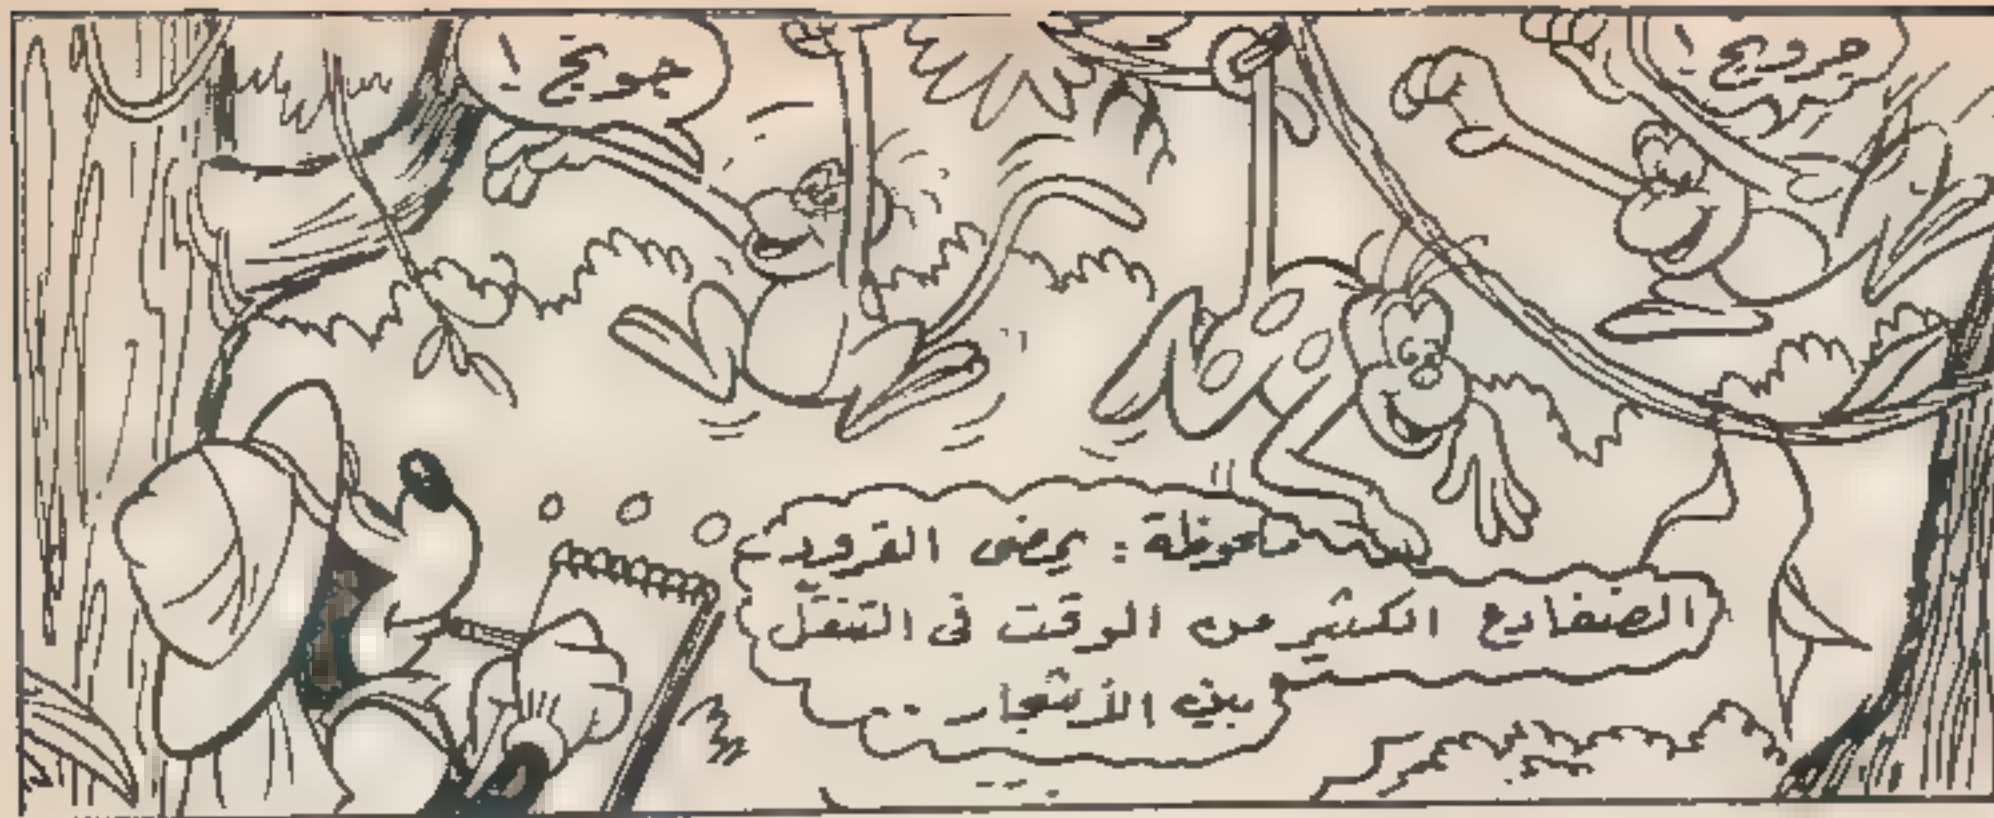 جروع !
جوع !
ملحوظة : يمضى القرود
الضفادع الكثير من الوقت فى التنقل
بين الأشجار ..